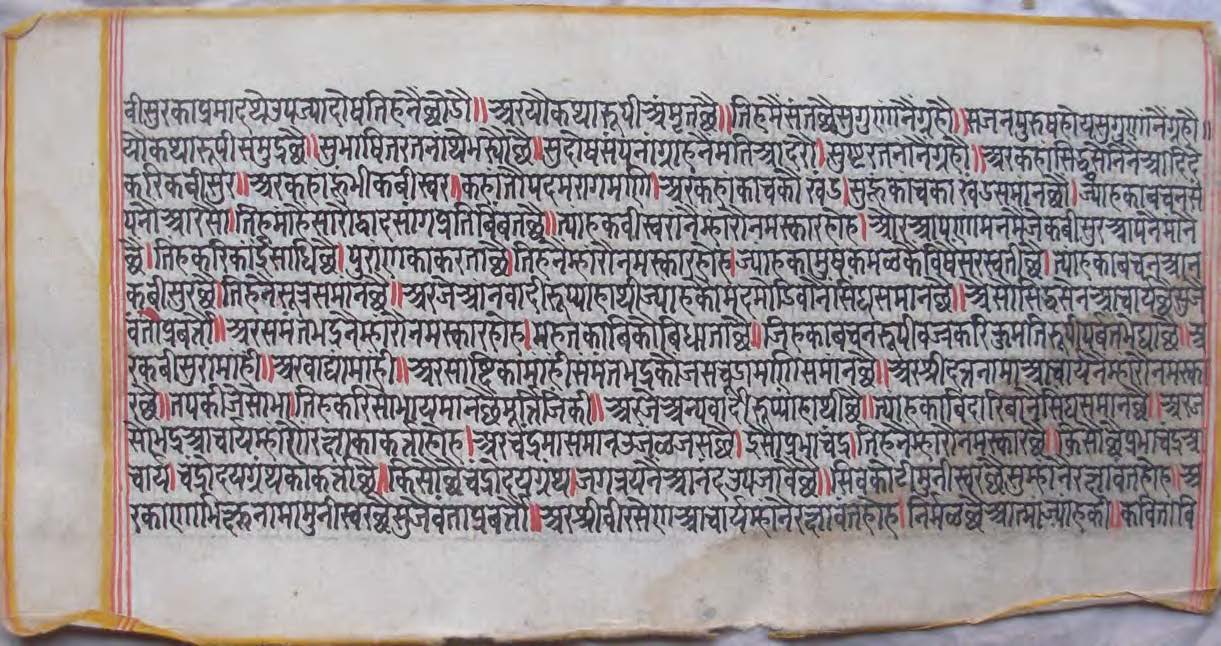 वीसुरकाप्रमादथेउपज्यादोषतिहनैंछोडौ॥ अरयौकथारूपीअंमृतछै॥ तिहमैसंतछैसुगुणांनैग्रहौ॥ सजनपुरुषहोयसुगुणांनैंग्रहौ॥
यौकथारूपीसमुद्रछै॥ सुभाषितरतनांथेभस्यौछै॥ सुदोषसंयुनांग्राहनैमतिआदरो। सुष्टरतनांनैग्रहौ॥ अरकहांसिद्धसेनिनैआदिदे
करिकवीसुर॥ अरकहांहूभीकवीस्वर। कहांतौपदमरागमणि। अरकहांकाचकौखंड। सुहूकाचकाखंडसमानछौं। ज्याहकाबचनसं
यनौआरसौ। तिहमांह सारौद्वादसांगप्रतिबिंबतछै॥ त्याहकवीस्वरांनैम्हारौनमस्कारहोह। औरआपणामनमैजेकवीसुरआपनैमानै
छै। तिहकरिकांईसाधिछै। पुराणकाकरताछै। तिहनैम्हारौनमस्कारहोह। ज्याहकामुषकमळकैविषैसरस्वतीछै। त्याहकाबचनआन
कवीसुरछै। तिहनैसूत्रसमानछै॥ अरजेआनवादीरूप्याहाथीज्याहकौमदमोडिवानैसिंघसमानछै॥ असौसिद्धसेनआचार्यछैसुजै
वंतौप्रवर्तौ॥ अरसमंतभद्रनैम्हारौनमस्कारहोह। महतकाविकौविधाताछै॥ जिहकाबचनरूपीवज्रकरिकुमतिरूपीपर्वतभेद्याछै॥ अ
रकवीसुरांमांही॥ अरवाद्यांमांही॥ अरसाष्टिकांमांहीसंमंतभद्रकौजसचूडामणिसमांनछै॥ अरश्रीदत्तनामाआचार्यनैम्हारौनमस्का
रछै॥ तपकीजेसोभा। तिहकरिसोभायमानछैमूर्तिजिकी॥ अरजेअन्यवादीरूप्यांहाथीछै॥ त्याहकाविदारिबानैसिंघसमानछै॥ अरज
सोभद्रआचार्यम्हारीरक्षाकाकर्ताहोह॥ अरचंद्रमासमानउजळजसछै। इसौप्रभाचंद्र। तिहनैम्हारौनमस्कारछै॥ कैसोछैप्रभाचंद्रआ
चार्य। चंद्रोदयग्रंथकाकर्ताछै॥ किसौछैचंद्रोदयग्रंथ। जगत्रयनैआनंदउपजावैछै॥ सिवकोटीमुनीस्वरछैसुम्हांनैरक्षावंतहोह॥ अ
रकाणभिक्षूनामामुनीस्वरछैसुजैवंताप्रवर्तौ॥ अरश्रीवीरसेणआचार्यम्हांनैरक्षावंतहोह। निर्मळछैआत्माज्यांहकौ॥ कवितावि